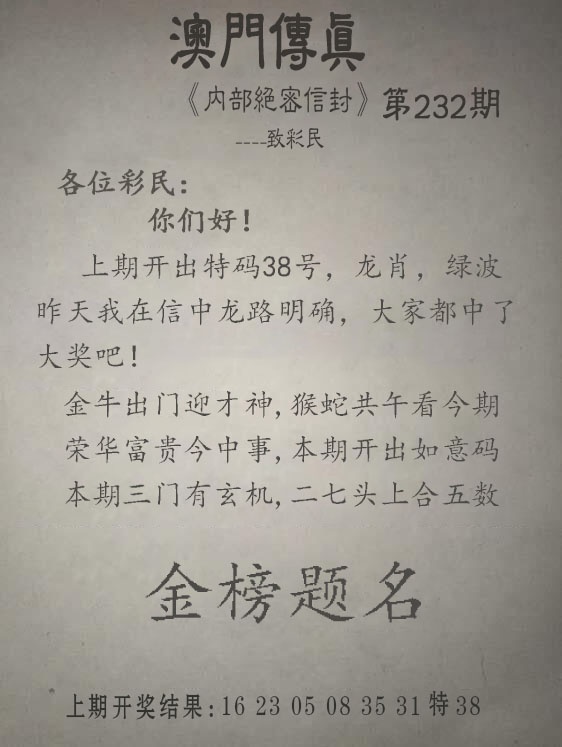 澳門傳真
《内部絕密信封》第232期
----致彩民
各位彩民：
你们好！
上期开出特码38号，龙肖，绿波
昨天我在信中龙路明确，大家都中了
大奖吧！
金牛出门迎才神,猴蛇共午看今期
荣华富贵今中事,本期开出如意码
本期三门有玄机,二七头上合五数
金榜题名
上期开奖结果:16 23 05 08 35 31 特 38